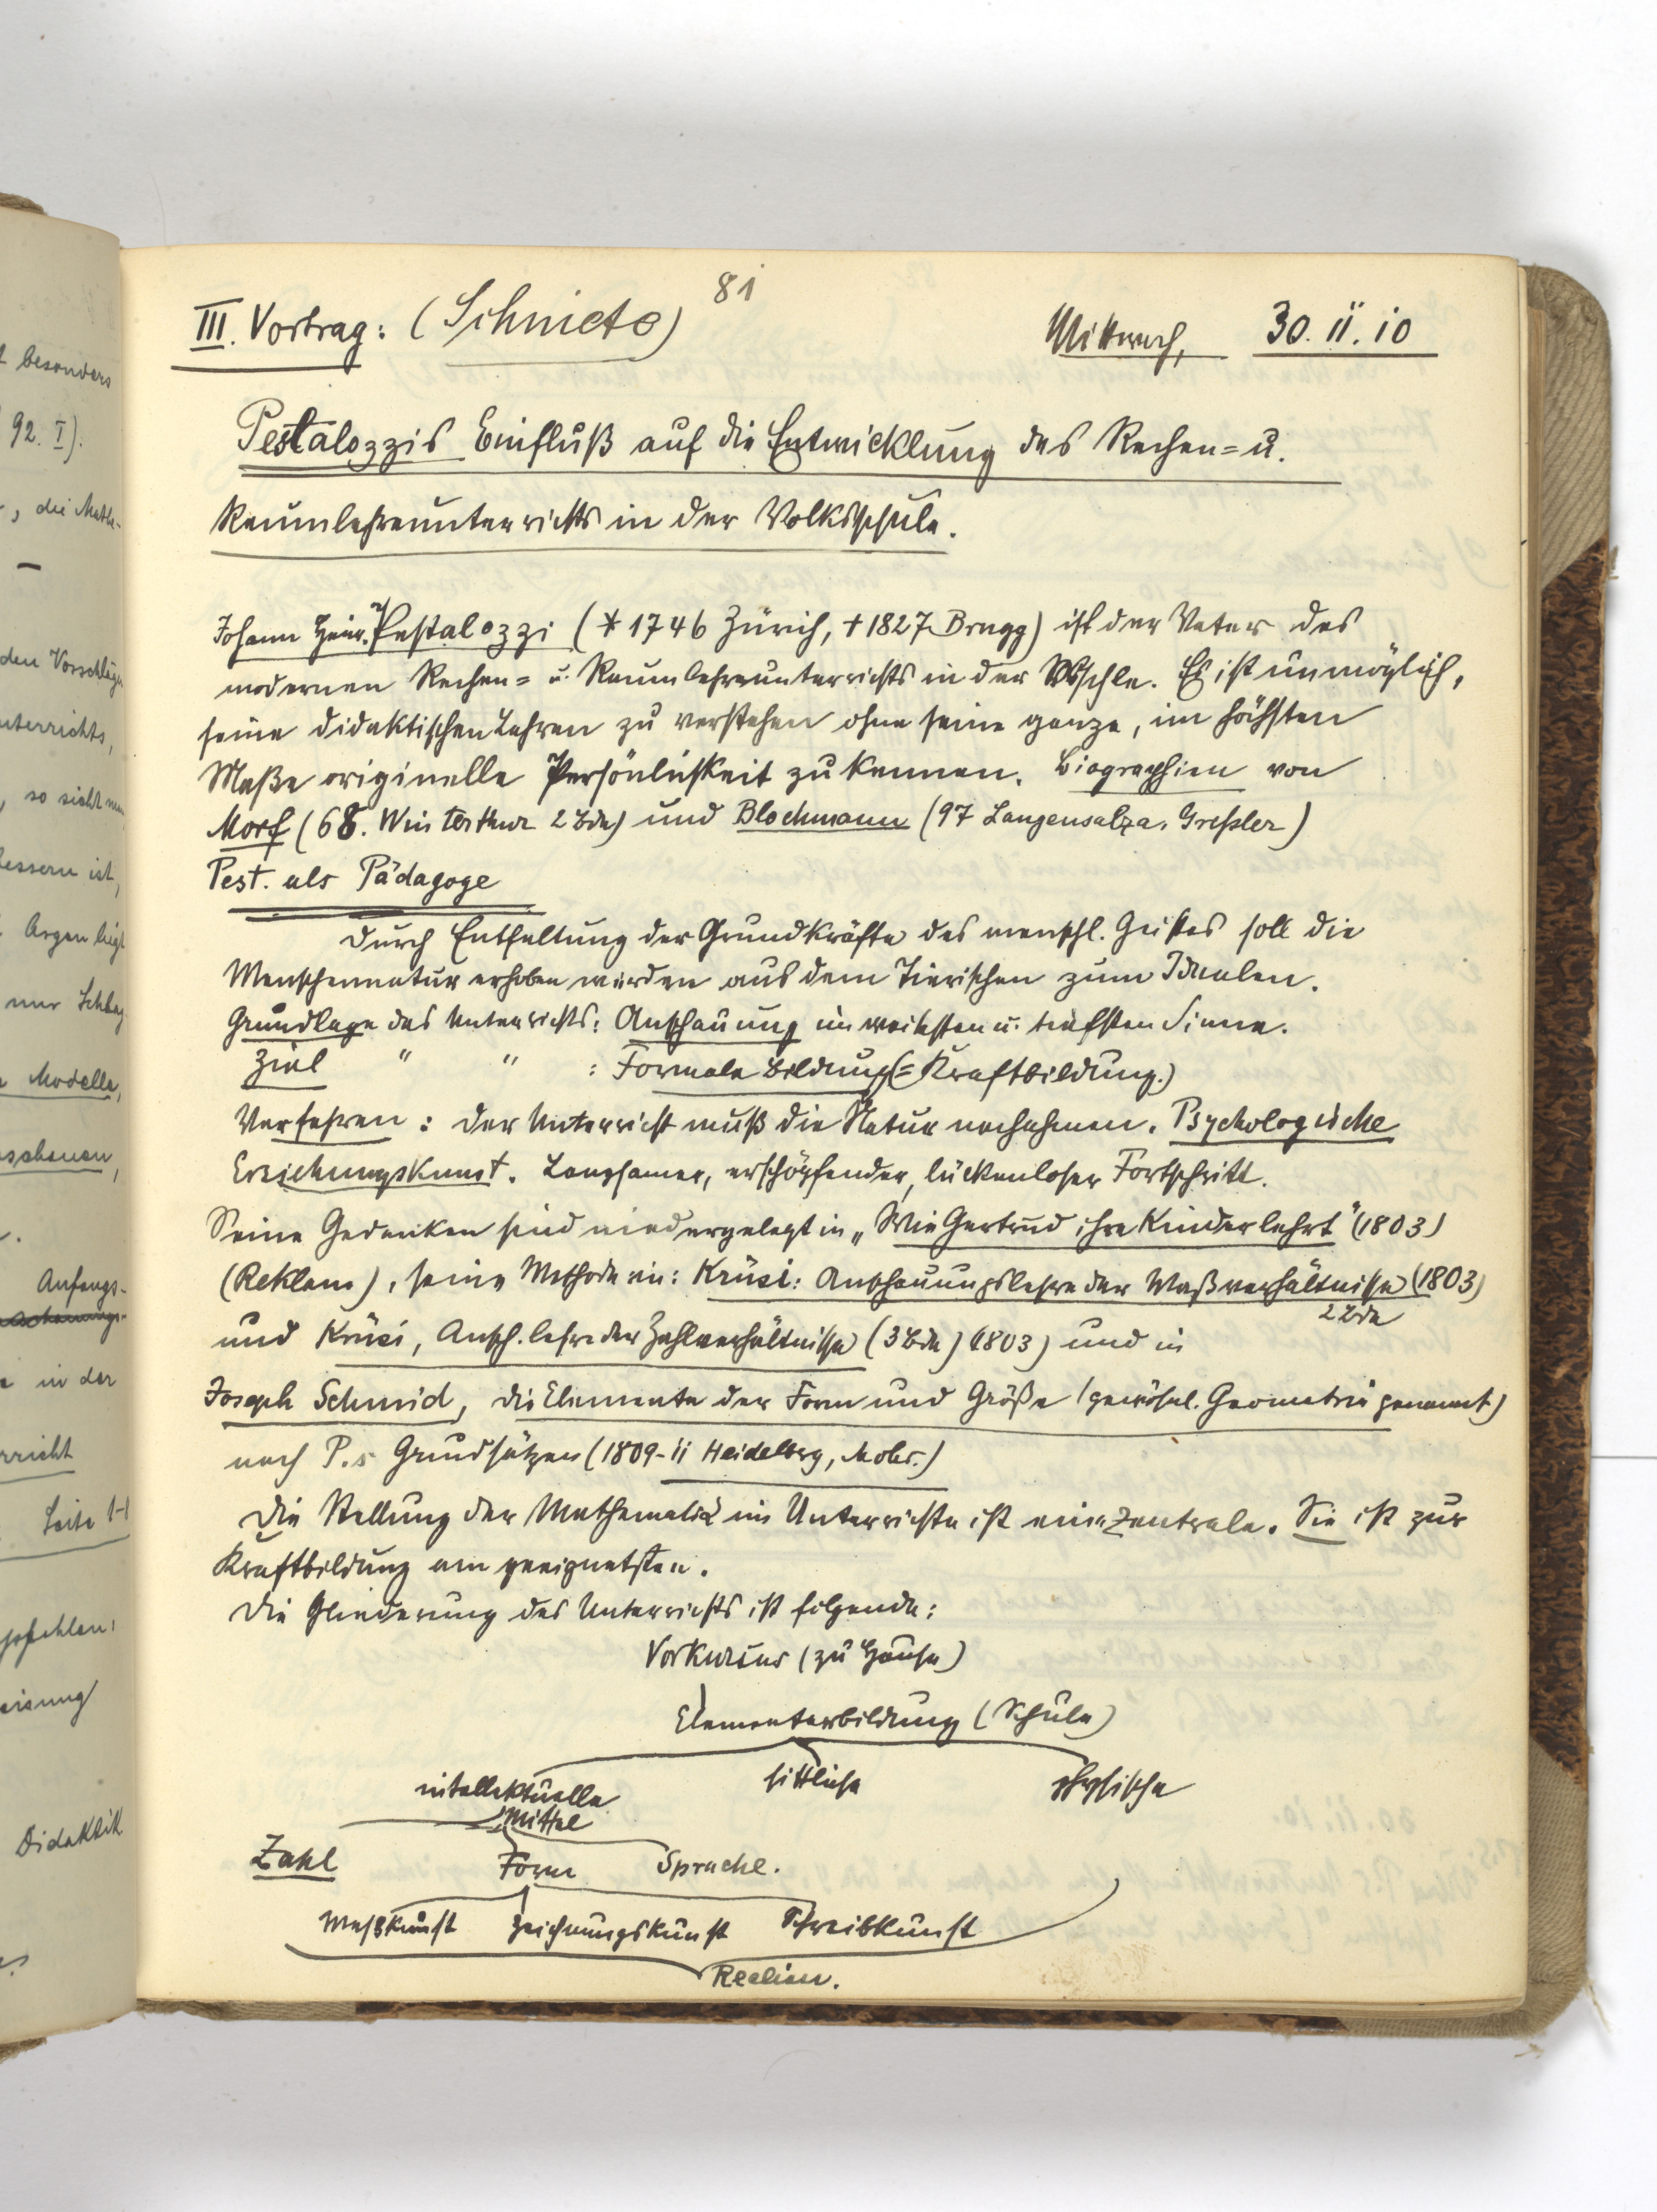 81
III. Vortrag: (Schnicte) Mittwoch, 30.11.10
Pestalozzis Einfluß auf die Entwicklung des Rechen= u.
Raumlehreunterrichts in der Volksschule.
Johann Heinr. Pestalozzi (* 1746 Zürich, † 1827 Brugg) ist der Vater des
modernen Rechen= u. Raumlehreunterrichts in der Vschle. Es ist unmöglich,
seine didaktischen Lehren zu verstehen ohne seine ganze, im höchsten
Maße originelle Persönlichkeit zu kennen. Biographien von
Morf (68. Winterthur 2 Bde) und Blochmann (97 Langensalza, Greßler)
Pest. als Pädagoge
Durch Entfaltung der Grundkräfte des menschl. Geistes soll die
Menschennatur erhoben werden aus dem Tierischen zum Idealen.
Grundlage des Unterrichts: Anschauung im weitesten u. tiefsten Sinne.
Ziel " " : Formale Bildung (= Kraftbildung.)
Verfahren: Der Unterricht muß die Natur nachahmen. Psychologische
Erziehungskunst. Langsamer, erschöpfender, lückenloser Fortschritt.
Seine Gedanken sind niedergelegt in „Wie Gertrud ihre Kinder lehrt" (1803)
(Reklam), seine Methode in: Krüsi: Anschauungslehre der Maßverhältnisse (1803)
2 Bde
und Krüsi, Ansch.lehre der Zahlverhältnisse (3 Bde) (1803) und in
Joseph Schmid, die Elemente der Form und Größe (gewöhnl. Geometrie genannt)
nach P.s Grundsätzen (1809-11 Heidelberg, Mohr.)
Die Stellung der Mathematik im Unterrichte ist eine zentrale. Sie ist zur
Kraftbildung am geeignetsten.
Die Gliederung des Unterrichts ist folgende:
Vorkursus (zu Hause)
Elementarbildung (Schule)
intellektuelle sittliche physische
Mittel
Zahl Form Sprache.
Meßkunst Zeichnungskunst Schreibkunst
Realien.
besonders
92. I).
, die Math-
den Vorschlägen
unterrichts,
, so sieht man
bessern ist,
Argen liegt
nur Schlag
Modelle,
Anfangs-
in der
Seite 1-1
Didaktik